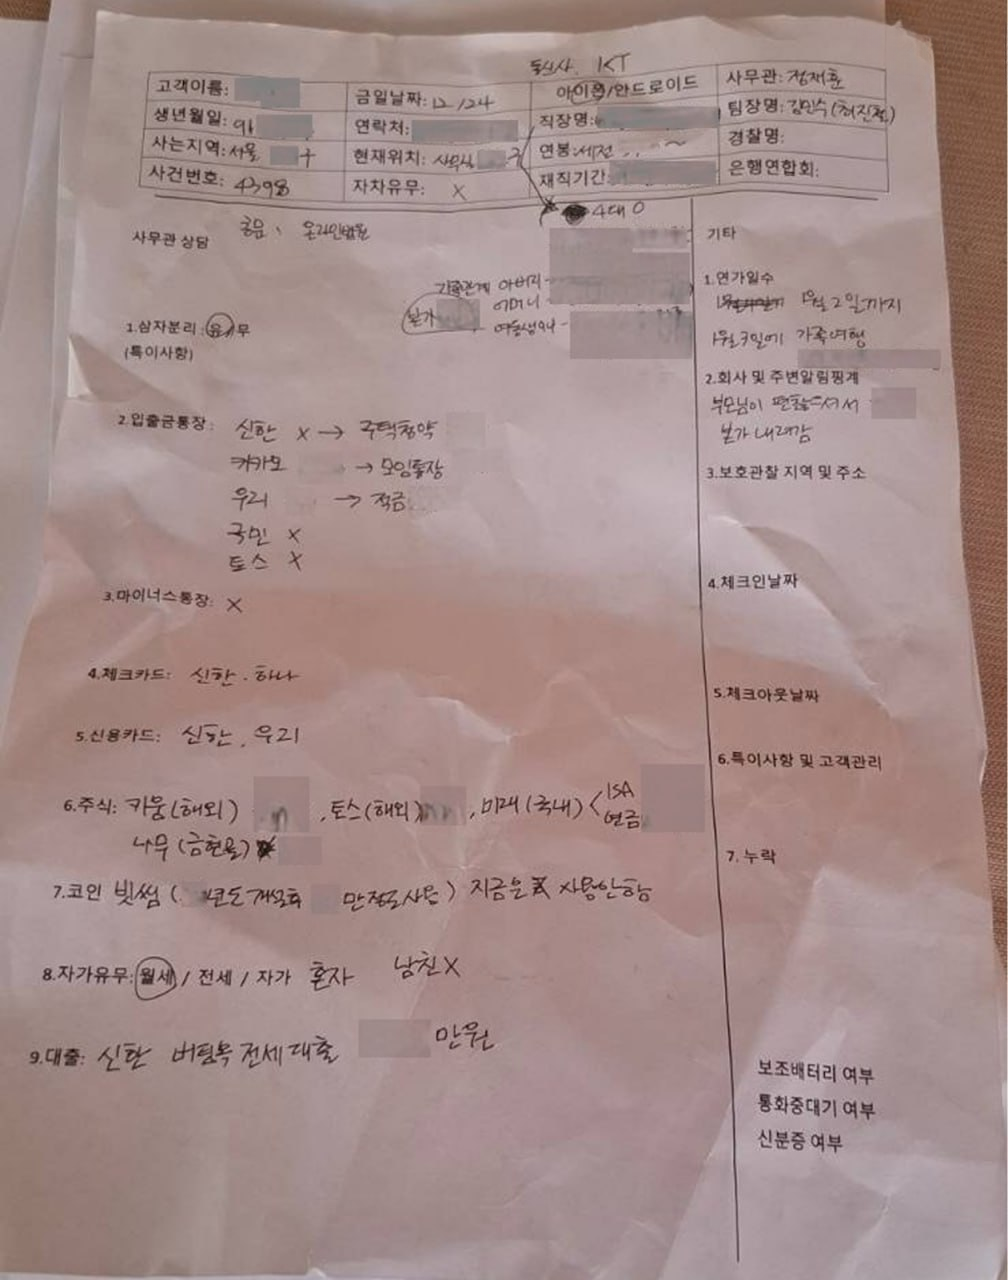 통신사 KT
고객이름:
금일날짜: 12/24
아이폰/안드로이드
사무관: 정재훈
생년월일: 91
연락처:
직장명:
팀장명: 김민수(허진철)
사는지역: 서울 구
현재위치: 사무실 구
연봉: 세전 ~
경찰명:
사건번호: 4398
자차유무: X
재직기간:
은행연합회:
4대 O
사무관 상담
온라인법원
가족관계 아버지 -
어머니 -
여동생
본가
1.삼자분리: 유/무
(특이사항)
2.입출금통장: 신한 X → 주택청약
카카오 → 모임통장
우리 → 적금
국민 X
토스 X
3.마이너스통장: X
4.체크카드: 신한. 하나
5.신용카드: 신한, 우리
6.주식: 키움(해외) , 토스(해외) , 미래(국내) < ISA
연금
나무(
7.코인 빗썸( 년도 개설후 만정도사용) 지금은 사용안함
8.자가유무: 월세 / 전세 / 자가 혼자 남친X
9.대출: 신한 버팀목 전세대출 만원
기타
1.연가일수
1월 2일까지
1월 3일에 가족여행
2.회사 및 주변알림핑계
부모님이 편찮으셔서
본가 내려감
3.보호관찰 지역 및 주소
4.체크인날짜
5.체크아웃날짜
6.특이사항 및 고객관리
7. 누락
보조배터리 여부
통화중대기 여부
신분증 여부